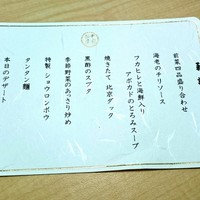 前菜四品盛り合わせ
海老のチリソース
フカヒレと海鮮入り
アボカドのとろみスープ
焼きたて 北京ダック
黒酢のスブタ
季節野菜のあっさり炒め
特製 ショウロンポウ
タンタン麺
本日のデザート